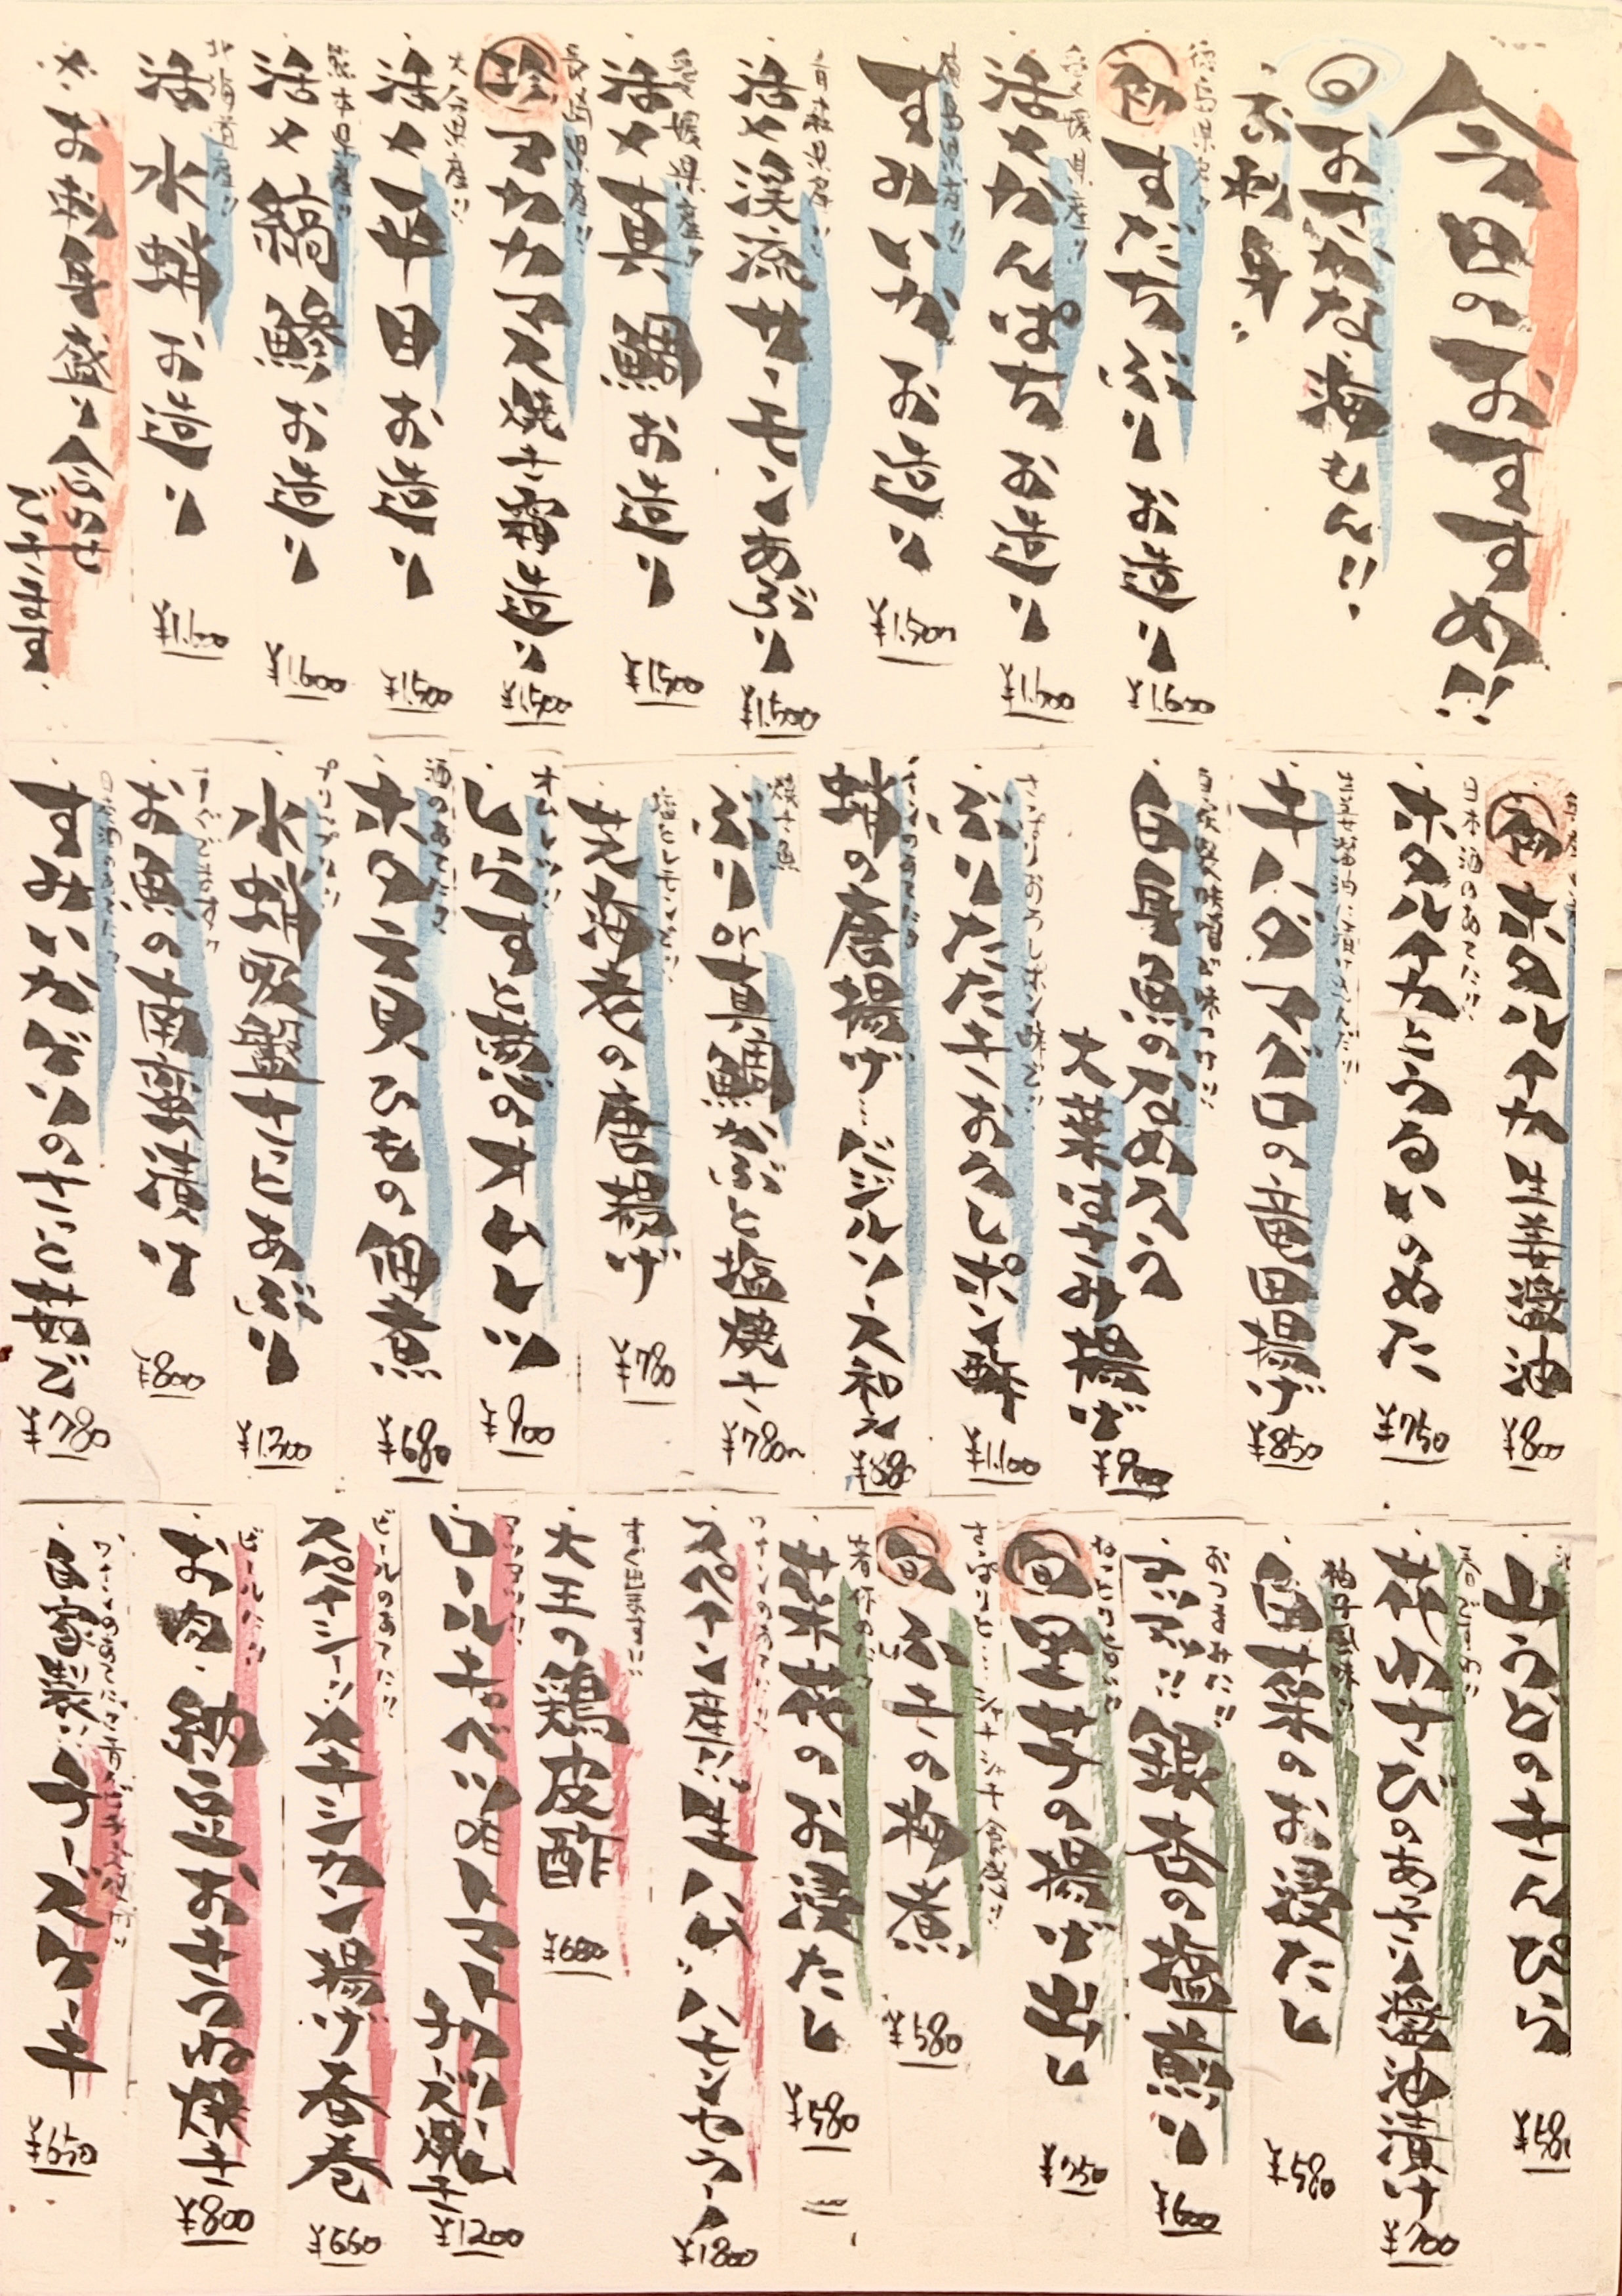 今日のおすすめ!!
おすすめな海せん!!
お刺身
徳島県産!!
すだちぶり お造り
¥1,600
愛媛県産!!
活〆かんぱち お造り
¥1,500
徳島県産!!
すみいか お造り
¥1,500
青森県産!!
活〆渓流サーモンあぶり
¥1,500
愛媛県産!!
活〆真鯛お造り
¥1,500
珍 アカカマス焼き霜造り
¥1,500
大分県産!!
活〆平目お造り
¥1,500
熊本県産!!
活〆縞鯵お造り
¥1,600
北海道産!!
活水蛸お造り
※お刺身盛り合わせできます
ホタルイカ生姜醤油
¥800
日本酒のあてに!!
ホタルイカとうるいのぬた
¥750
生姜醤油に漬けこんだ!!
キハダマグロの竜田揚げ
¥850
白身魚のなめろう
大葉はさみ揚げ
¥800
さっぱりおろしポン酢で!!
ぶりたたき おろしポン酢
¥1,100
蛸の唐揚げ…バルバース和え
焼き魚
ぶり or 真鯛かぶと塩焼き
¥780〜
塩とレモンで!!
芝海老の唐揚げ
¥780
オムレツ!!
しらすと葱のオムレツ
¥900
酒のあてに!!
ホタテ貝ひもの角煮
¥680
プリップリ!!
水蛸吸盤さっとあぶり
¥1,300
すぐでます!!
お魚の南蛮漬け
¥800
日本酒のあてに!!
すみいかげその さっと茹で
¥780
ごぼうのきんぴら
春の香り!!
葉わさびのあっさり醤油漬け
¥700
柚子風味!!
白菜のお浸だし
¥580
おつまみに!!
ホクホク!!銀杏の塩煎り
¥600
旬 里芋の揚げ出し
¥750
旬 ふきの梅煮
¥580
菜花のお浸だし
¥580
スペイン産ガリシア
¥1800
すぐ出ます!!
大王の鶏皮酢
¥680
ロールキャベツ or トマトソース
チーズ焼き
¥1200
ビールのあてに!!
スパイシーメキシカン揚げ春巻
¥650
ビールに!!
¥800
自家製!!チーズケーキ
¥650